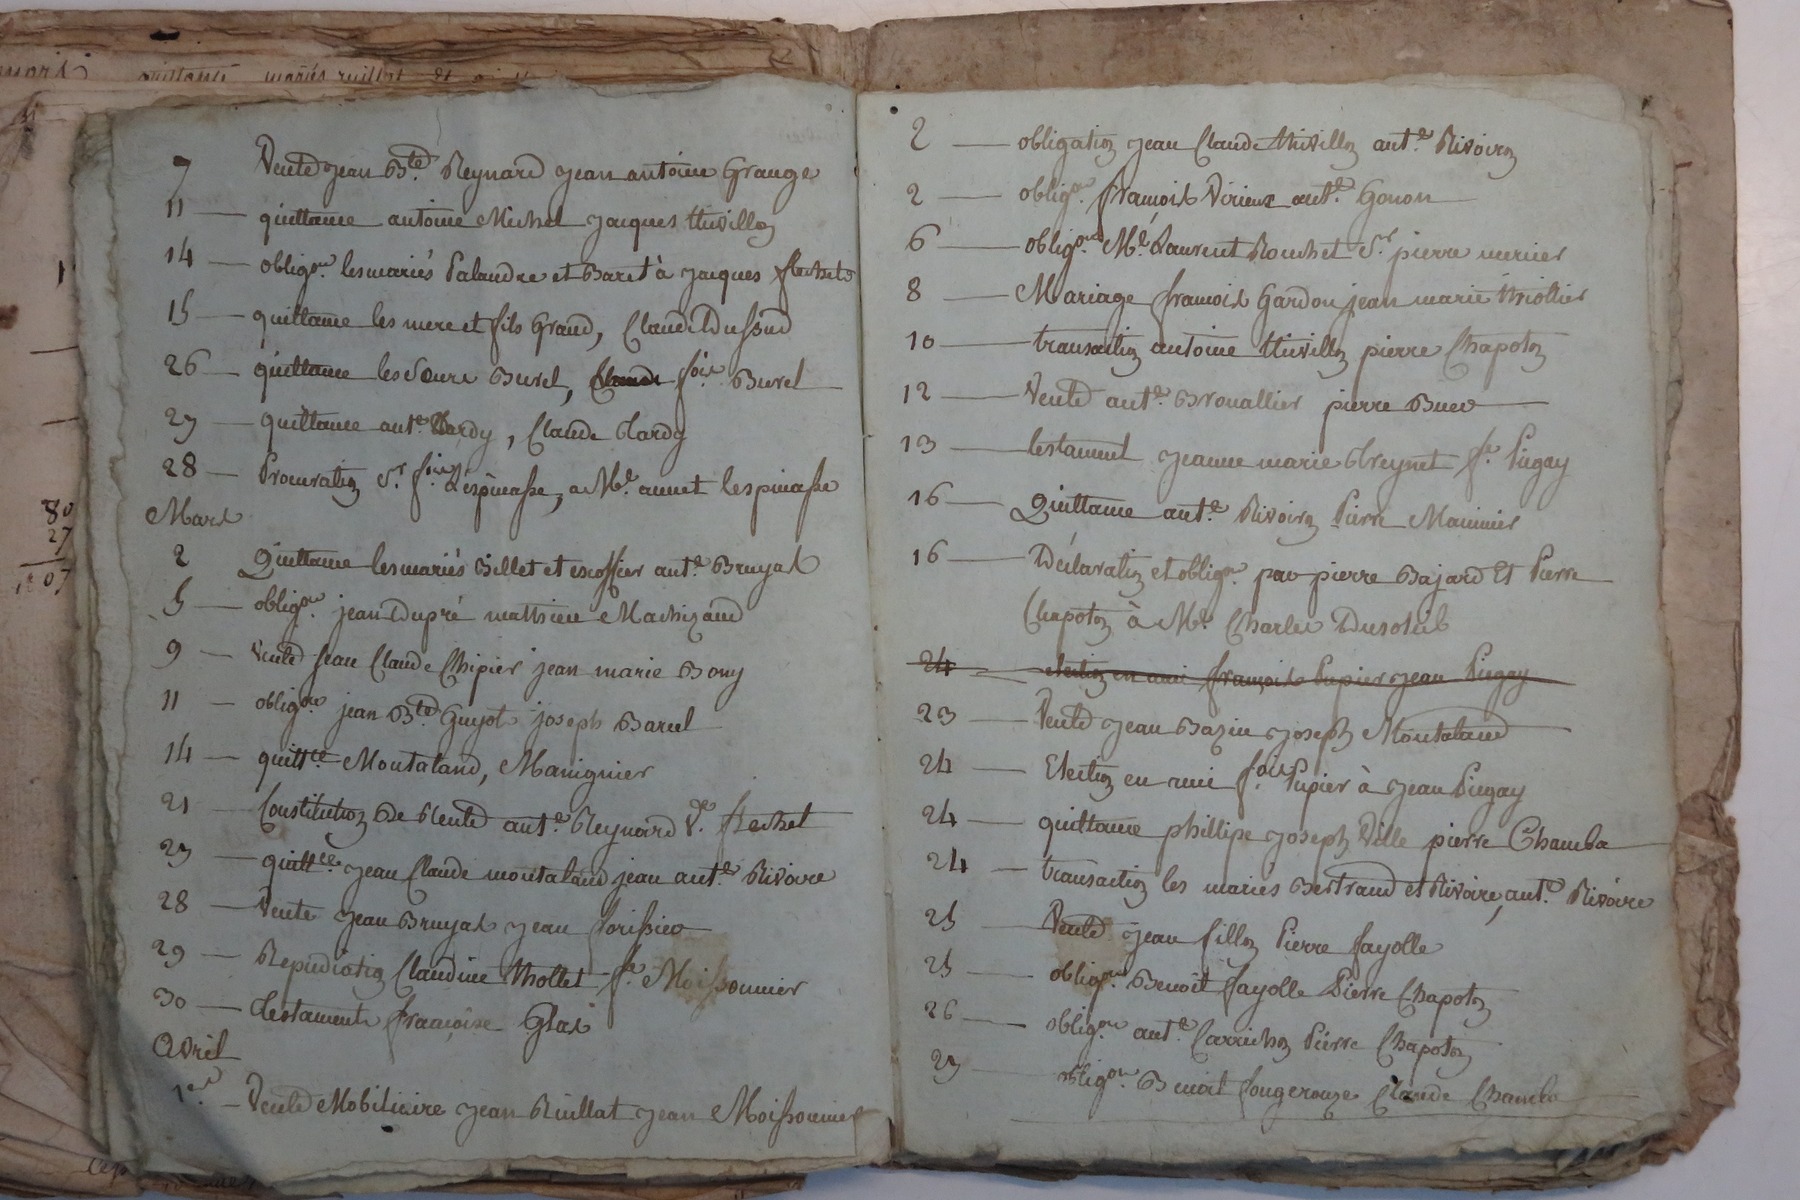 quittance mariés ruillat et
7 Vente jean Bte. Reynard jean antoine Grange
11 — quittance antoine Michel jacques thivillon
14 — obligon. les mariés Palandre et Baret à jacques flechet
15 — quittance les mere et fils Grand, Claude Dussud
26 — quittance les Soeurs Burel, fois Burel
27 — quittance ante. Tardy, Claude tardy
28 — Procuration Sr. fois Lespinasse, a Me. annet lespinasse
Mars
2 Quittance les mariés Billet et escoffier ante. Bruyas
5 — obligon. jean Dupré mathieu Machizaud
9 — Vente jean Claude Chipier jean marie Bony
11 — obligon. jean Bte. Guyot joseph Barcel
14 — quittce Montaland, Manignier
21 — Constitution De Rente ante. Reynard Ve. flechet
27 — quittce. jean Claude montaland jean ante. Rivoire
28 — Vente jean Bruyas jean
29 — Repudiation Claudine thollet fe. Moissonnier
30 — testament françoise Glas
avril
1er. — Vente Mobiliaire jean Ruillat jean Moissonnier
2 — obligation jean Claude thivillon ante. Rivoiron
2 — obligon. françois Virieux ante. Gonon
6 — obligon. Me. Laurent Rouchet Sr. pierre mercier
8 — Mariage françois Gardon jean marie thiollier
10 — transaction antoine thivillon pierre Chapoton
12 — Vente ante. Brouallier pierre Buer
13 — testament jeanne marie treynet fe. Pugay
16 — Quittance ante. Rivoiron Pierre Manimier
16 — Déclaration et obligon. par pierre Bajard Et Pierre
Chapoton à Me. Charles Dusoleil
24 — election en ami françois Pupier jean Pugay
23 — Vente jean Bazin joseph Montaland
24 — Election en ami fois. Pupier à jean Pugay
24 — quittance phillipe joseph Ville pierre Chamba
24 — transaction les mariés Bertrand et Rivoire, ante. Rivoire
25 — Vente jean fillon Pierre fayolle
25 — obligon. Benoit fayolle Pierre Chapoton
26 — obligon. ante. Carrichon Pierre Chapoton
27 — obligon. Benoit fougerouze Claude Chamba
80
27
107